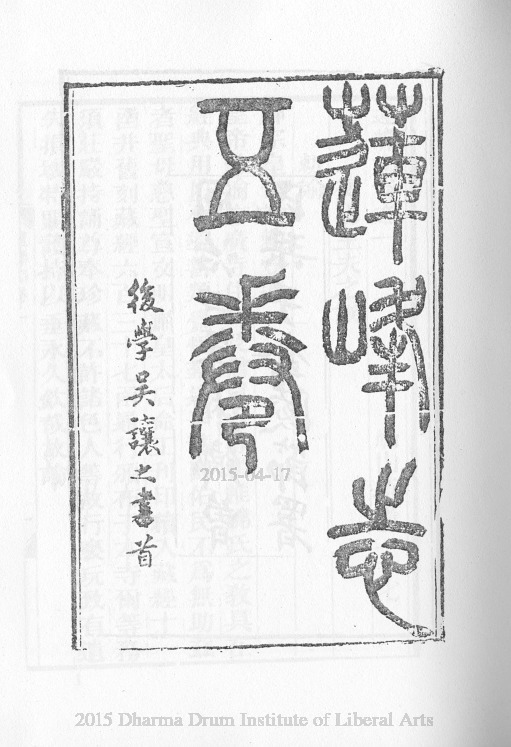 蓮峰志
五卷
後學吳讓之書首
2015-04-17
2015 Dharma Drum Institute of Liberal Arts